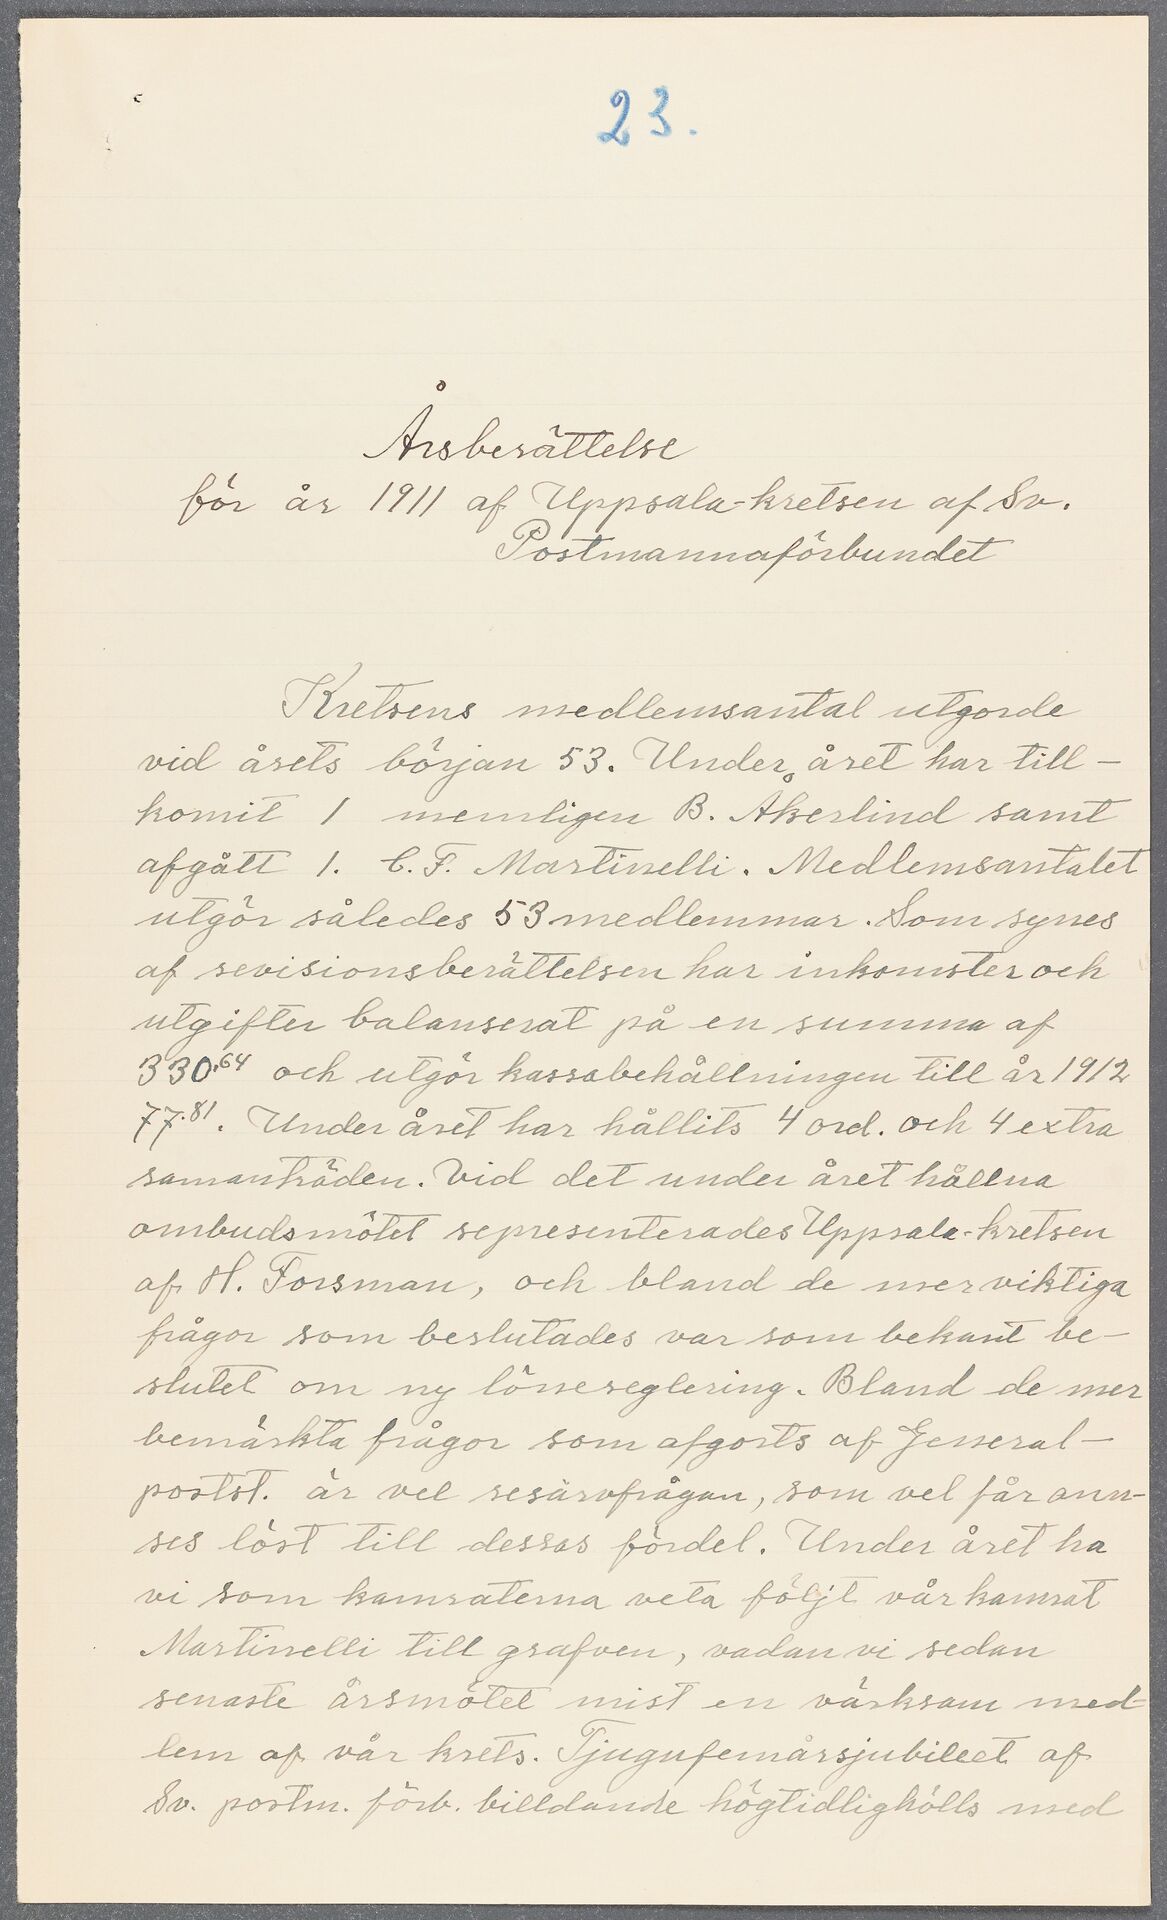 23.
Årsberättelse
för år 1911 af Uppsala-kretsen af Sv.
Postmannaförbundet
Kretsens medlemsantal utgorde
vid årets början 53. Under året har till-
komit 1 nemligen B. Åkerlind samt
afgått 1. C. F. Martinelli. Medlemsantalet
utgör således 53 medlemmar. Som synes
af revisionsberättelsen har inkomster och
utgifter balanserat på en summa af
330.64 och utgör kassabehållningen till år 1912
77.81. Under året har hållits 4 ord. och 4 extra
samanträden. Vid det under året hållna
ombudsmötet representerades Uppsala-kretsen
af H. Forsman, och bland de mer viktiga
frågor som beslutades var som bekant be-
slutet om ny lönereglering. Bland de mer
bemärkta frågor som afgorts af General-
postst. är vel resärvfrågan, som vel får ann-
ses löst till dessas fördel. Under året ha
vi som kamraterna veta följt vår kamrat
Martinelli till grafven, vadan vi sedan
senaste årsmötet mist en värksam med-
lem af vår krets. Tjugufemårsjubileet af
Sv. postm. förb. billdande högtidlighölls med